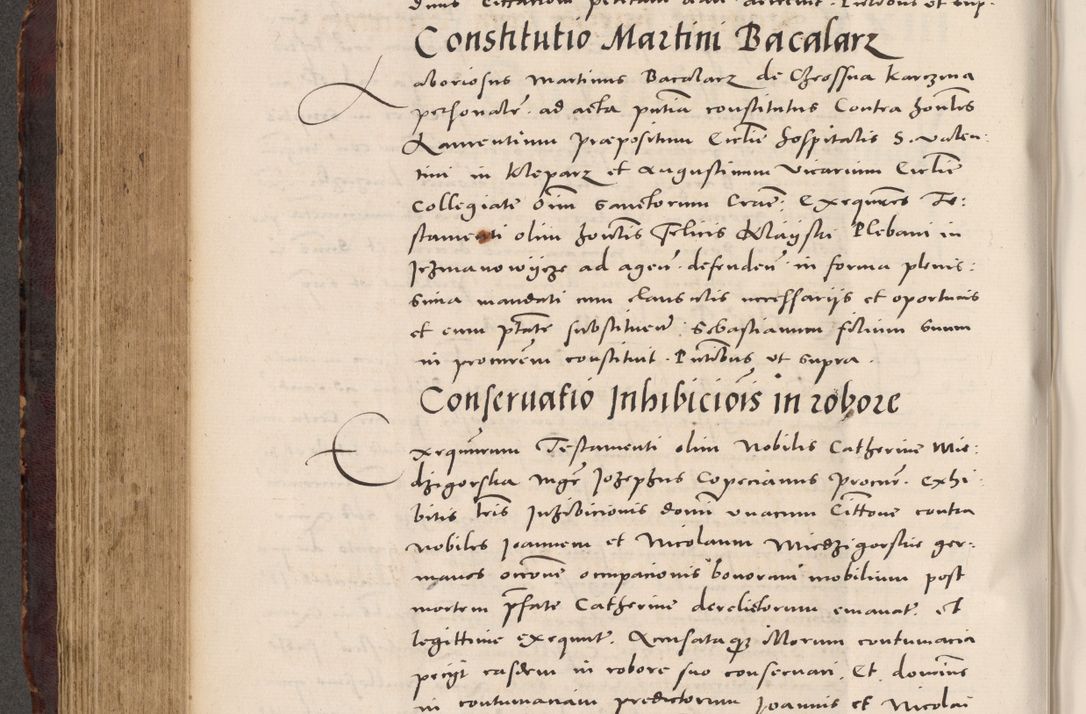 Constitutio Martini Bacalarz
Laboriosus Martinus Bacalarz de Chrossna Karczma
personalr. ad acta pntia constitutus Contra honbles
Laurentium Præpositum Ecclie Hospitalis S. Valen:
tini in Kleparz et Augustinum Vicarium Ecclie
Collegiate Oim Sanctorum Crac: Exequutores Te:
stamenti olim honblis Felicis Plebani in
ad agen. defenden. in forma plenis:
sima mandati cum clausulis necessarijs et oportunis
et cum ptate substituen. Sebastianum filium Suum
in procurem constituit. Pntibus ut supra.
Conseruatio Inhibiciois in robore
Exequutorum Testamenti olim Nobilis Catherine Mie:
dzigorska Mgr Jozephus Copecianus Procur. Exhi:
bitis lris Inhibicionis domi unacum Cittone contra
Nobiles Joannem et Nicolaum Miedzigorskie ger:
manos occone occupacionis bonorum mobilium post
mortem pfate Catherine derelictorum emanat. et
legittime exequut. Accusataqz illorum contumacia
petijt easdem in robore suo conseruari. Et dominus
in contumaciam predictorum Joannis et Nicolai